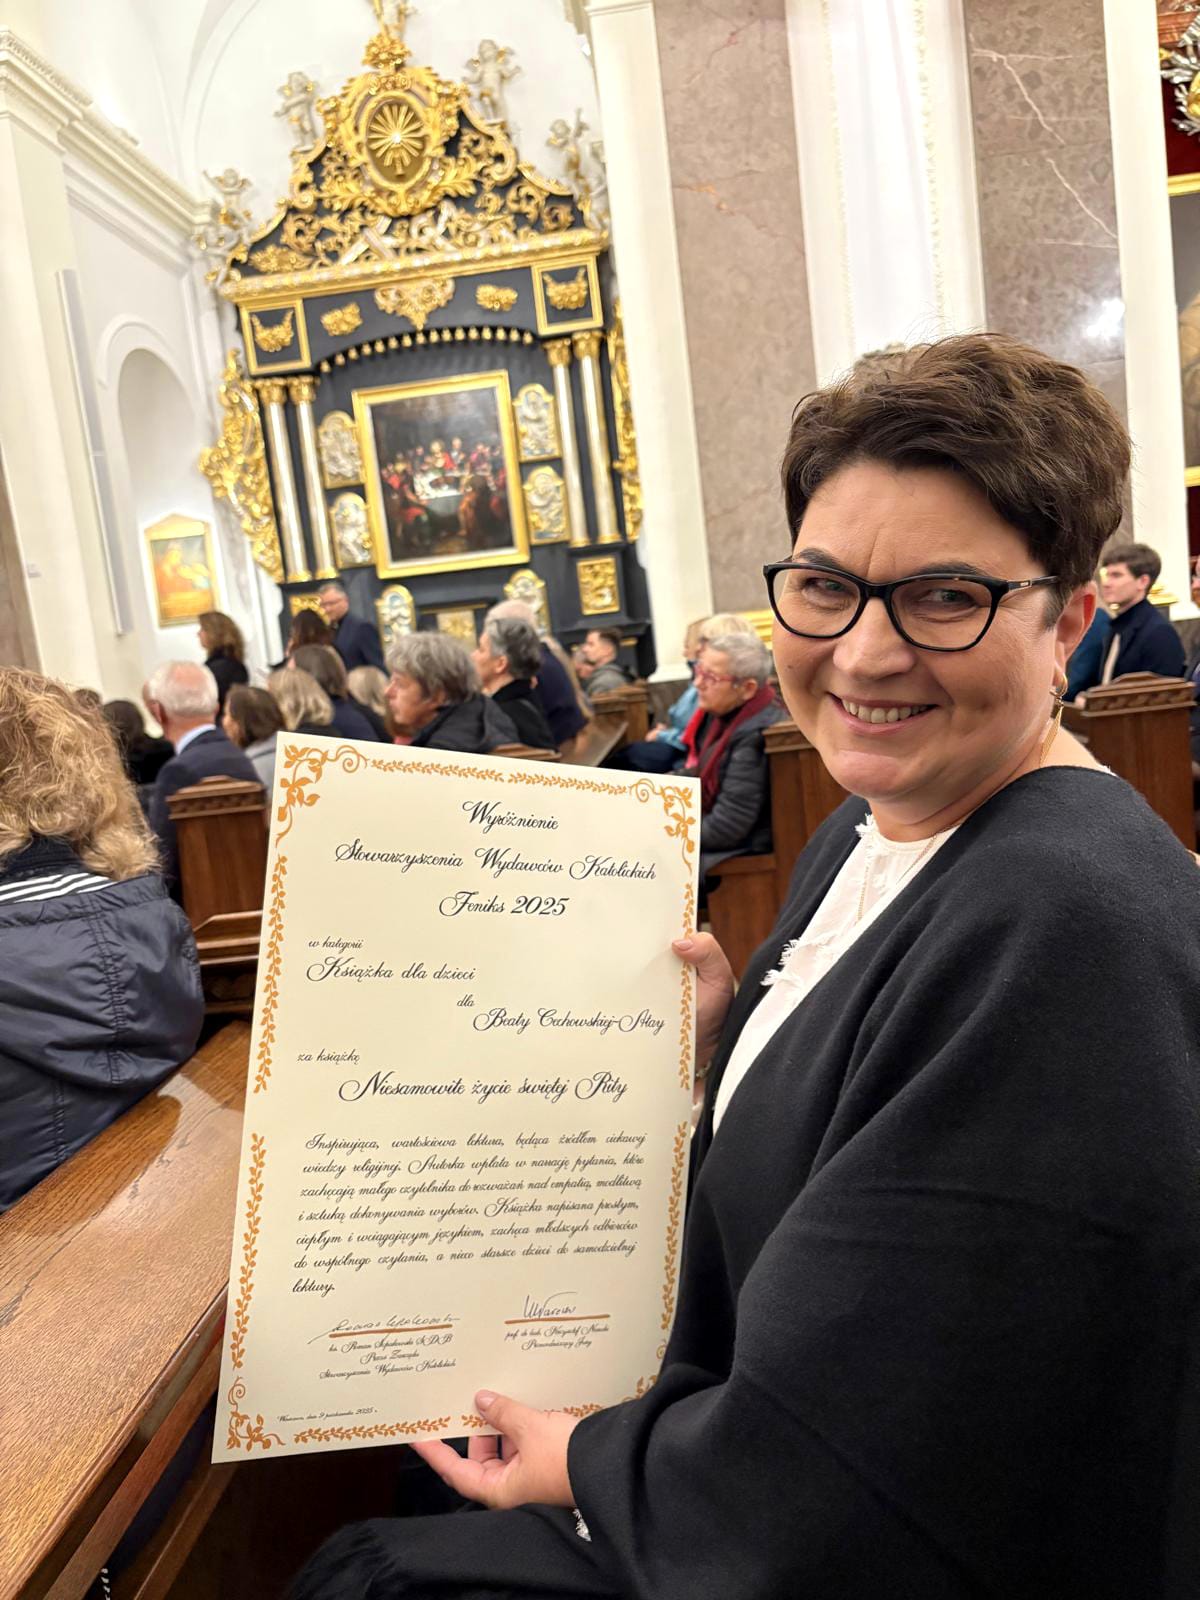 Wyróżnienie
Stowarzyszenia Wydawców Katolickich
Feniks 2025
w kategorii
Książka dla dzieci
dla
Beaty Cechowskiej-Atay
za książkę
Niesamowite życie świętej Rity
Inspirująca, wartościowa lektura, będąca źródłem ciekawej
wiedzy religijnej. Autorka wplata w narrację pytania, które
zachęcają małego czytelnika do rozważań nad empatią, modlitwą
i sztuką dokonywania wyborów. Książka napisana prostym,
ciepłym i wciągającym językiem, zachęca młodszych odbiorców
do wspólnego czytania, a nieco starsze dzieci do samodzielnej
lektury.
ks. Roman Szpakowski SDB
Prezes Zarządu
Stowarzyszenia Wydawców Katolickich
prof. dr hab. Krzysztof
Przewodniczący Jury
Warszawa, dnia 9 października 2025 r.